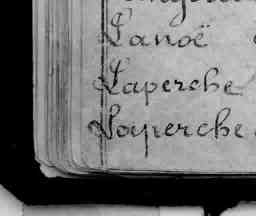 Lanoë
Laperche
Loyperche